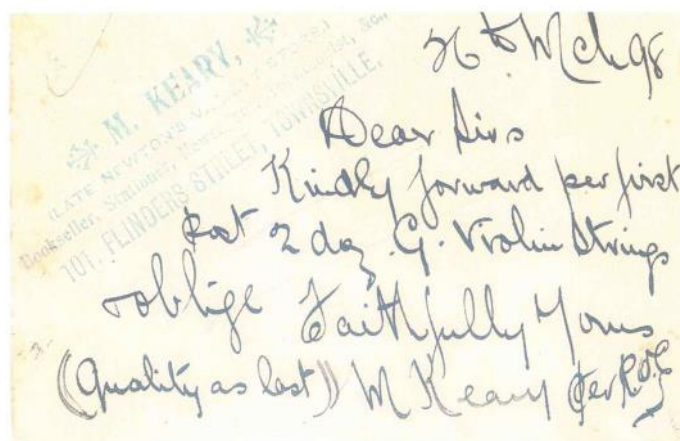 M. KEARY,
(LATE NEWTON'S
Bookseller, Stationer,
101, FLINDERS STREET, TOWNSVILLE.
26th Mch 98
Dear Sirs
Kindly forward per first
post 2 doz. G. Violin Strings
& oblige Faithfully Yours
(Quality as last) M Keary per